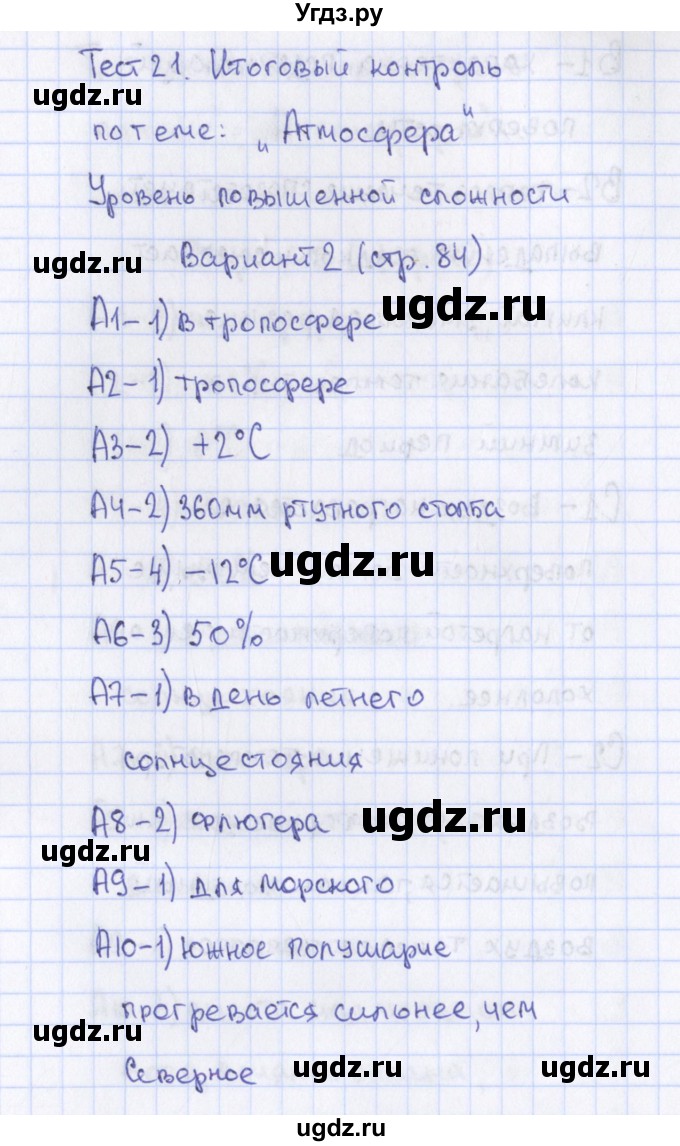 Угдз.ру
Тест 21. Итоговый контроль
ugdz.ru
по теме: „Атмосфера"
Уровень повышенной сложности
ugdz.ru
Вариант 2 (стр. 84)
ugdz.ru
А1-1) в тропосфере
А2-1) тропосфере
А3-2) +2°С
А4-2) 360мм ртутного столба
ugdz.ru
ugdz.ru
А5-4) -12°С
ugdz.ru
А6-3) 50%
А7-1) в день летнего
солнцестояния
А8-2) флюгера
ugdz.ru
ugdz.ru
А9-1) для морского
А10-1) Южное полушарие
прогревается сильнее, чем
ugdz.ru
Северное
ugdz.ru
ugdz.ru